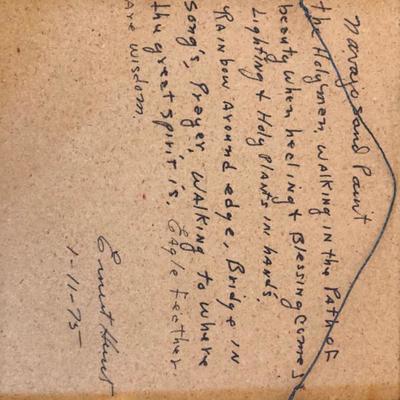 Navajo Sand Paint
the Holymen, walking in the Path of
beauty when heeling & Blessing comes
Lighting & Holy Plants in hands,
Rainbow around edge, Bridge in
song's, Prayer, walking to where
the great spirit is. Eagle feether
Are wisdom.
Ernest Hunt
1-11-75